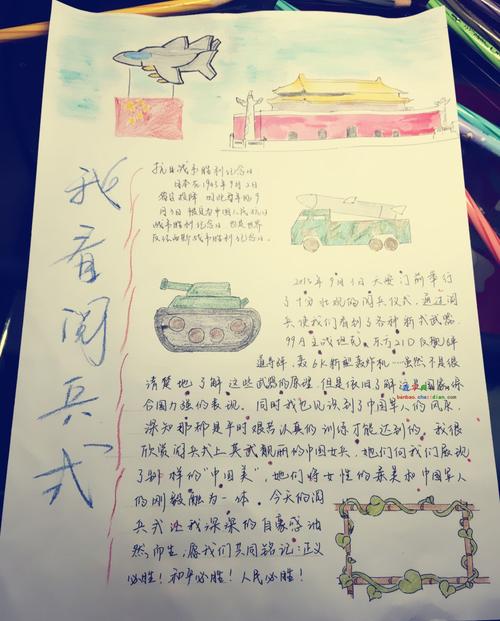 我看阅兵式
抗日战争胜利纪念日
日本在1945年9月2日
签名投降 因此每年的9
月3日被定为中国人民抗日
战争胜利纪念日 也是世界
反法西斯战争胜利纪念日。
2015年9月3日天安门前举行
了十分壮观的阅兵仪式,通过阅
兵使我们看到了各种新式武器.
99A主战坦克、东方21D反舰弹
道导弹、轰6K新型轰炸机……虽然不是很
清楚地了解这些武器的原理,但是依旧了解这是国家综
合国力强的表现。同时我也见识到了中国军人的风采,
深知那都是平时艰苦认真的训练才能达到的。我很
欣赏阅兵式上英武靓丽的中国女兵,她们向我们展现
了别样的“中国美”,她们将女性的柔美和中国军人
的刚毅融为一体。今天的阅
兵式让我深深的自豪感油
然而生,愿我们共同铭记:正义
必胜!和平必胜!人民必胜!
banbao.chazidian.com